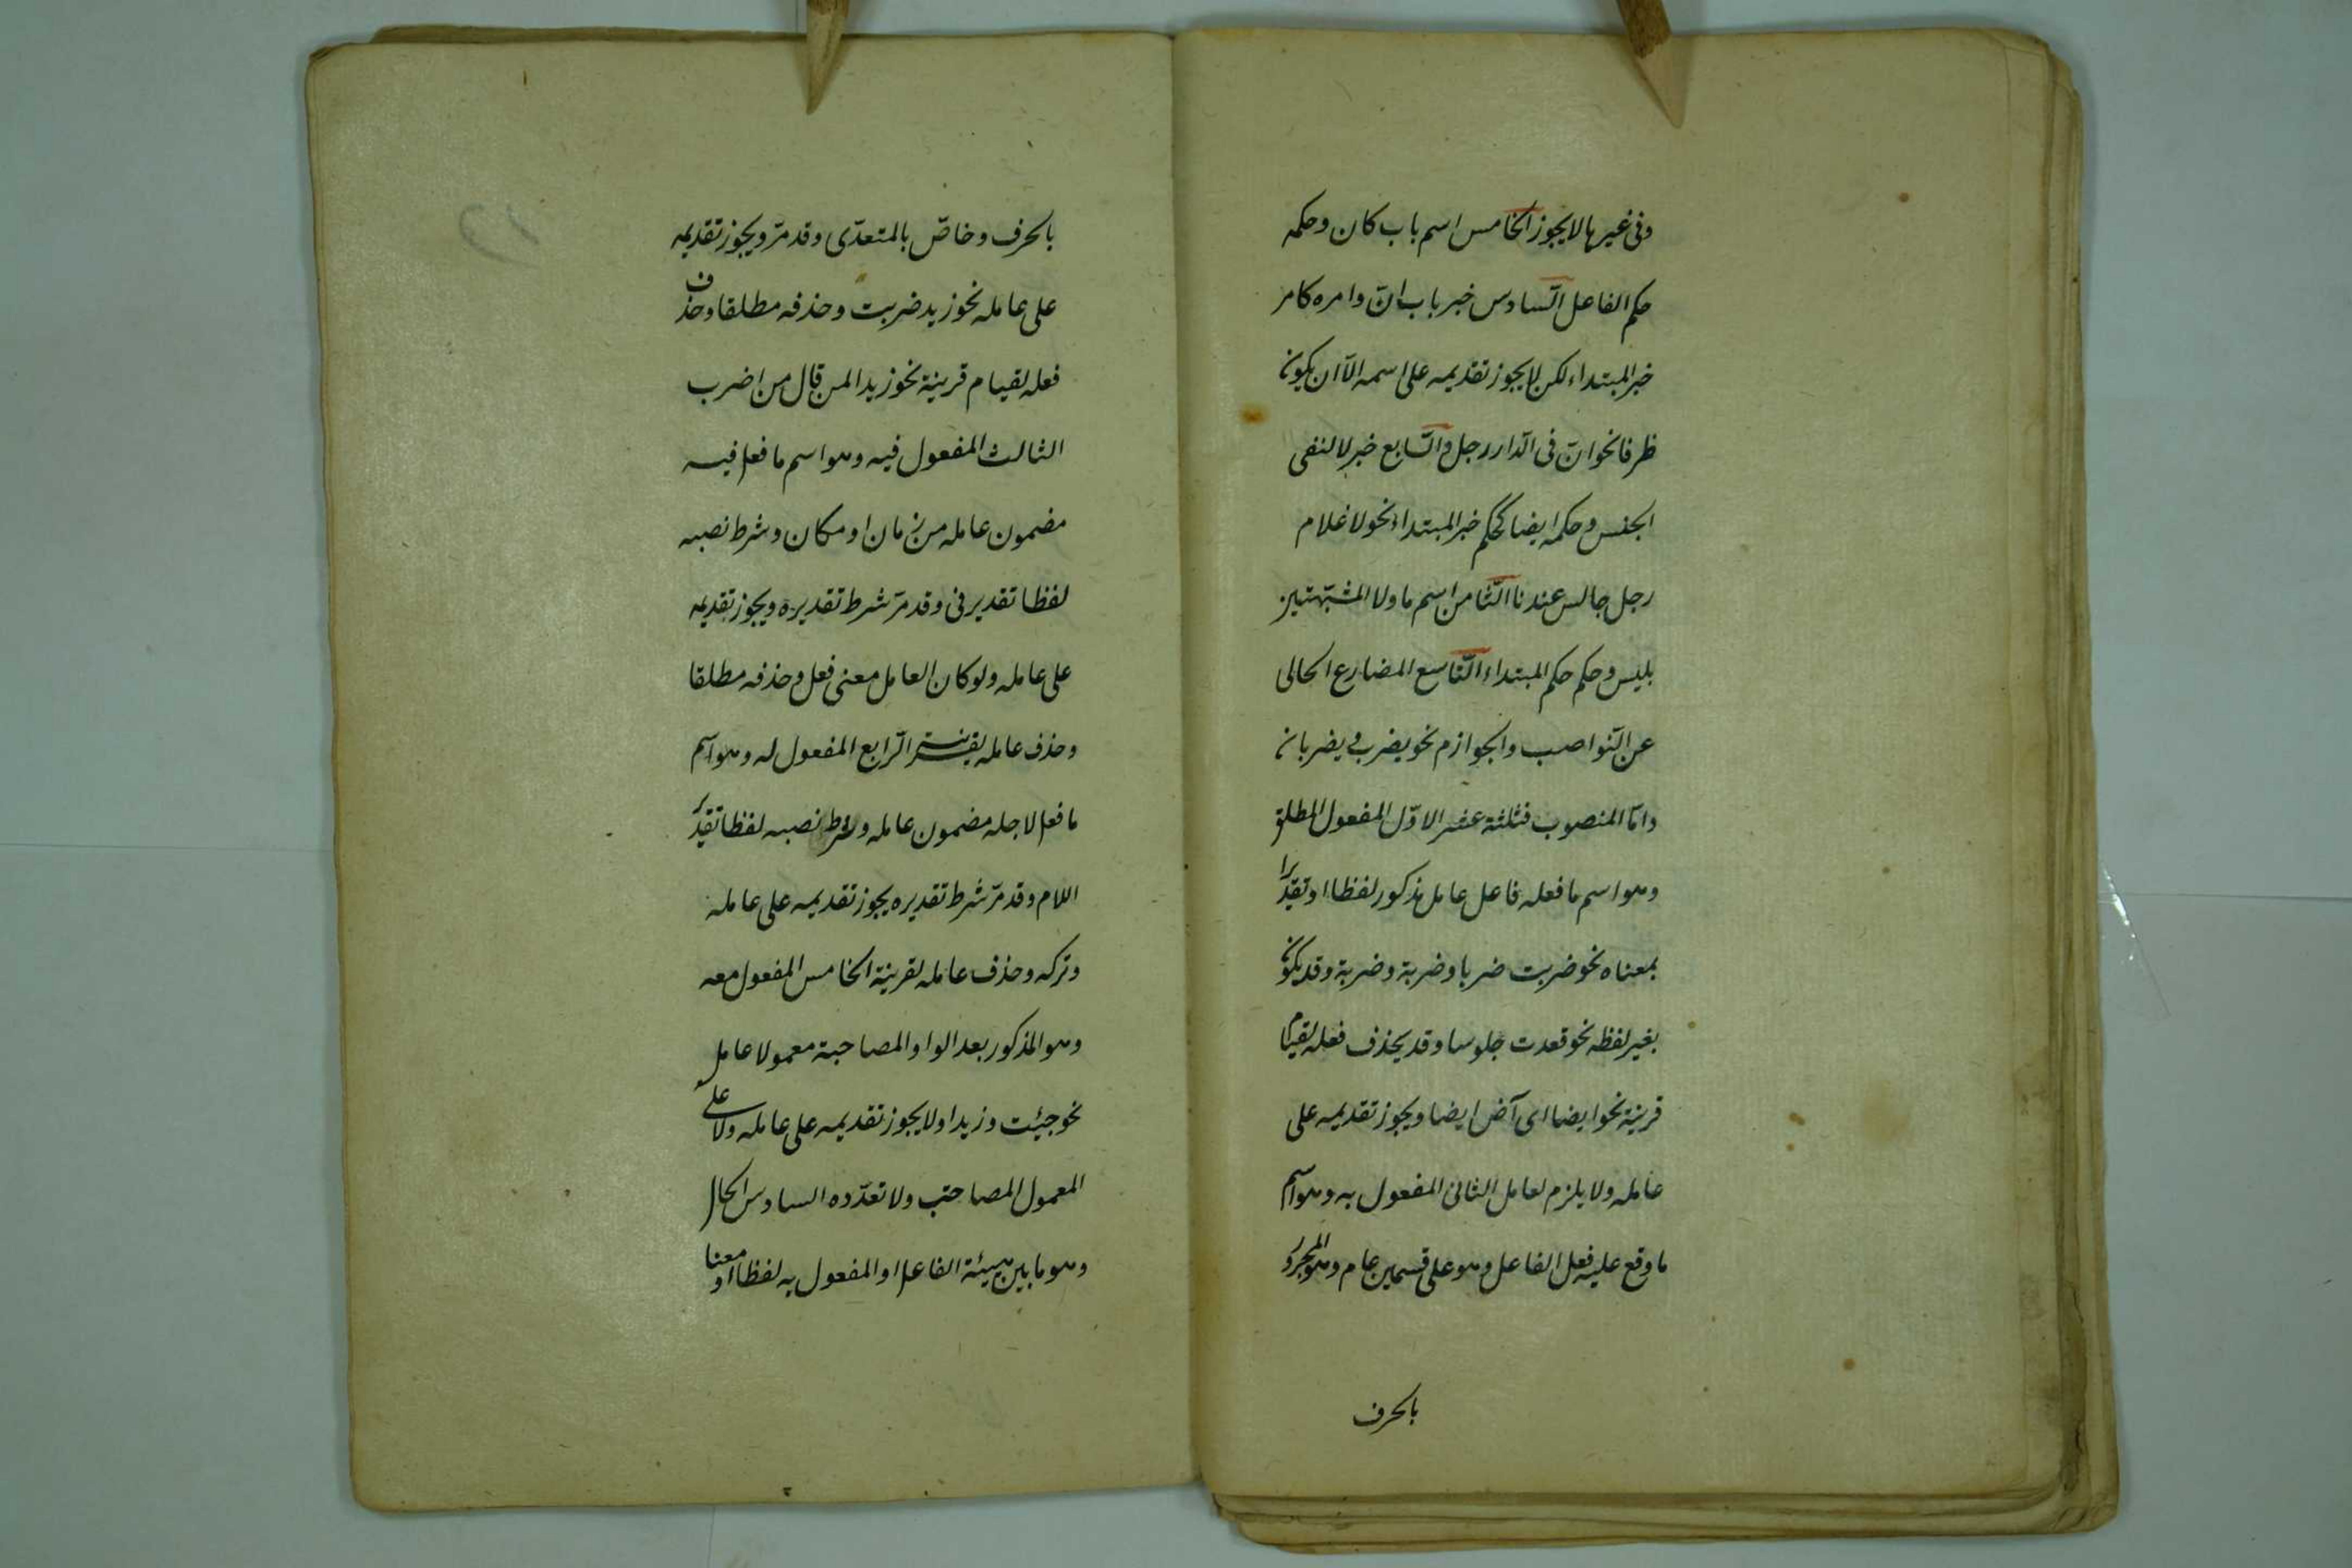 وفى غيرها لا يجوز الخامس اسم باب كان وحكمه
حكم الفاعل السّادس خبر باب انّ وامره كامر
خبر المبتداء لكن لا يجوز تقديمه على اسمه الّا ان يكون
ظرفا نحو انّ فى الدّار رجل والسّابع خبر لا لنفى
الجنس وحكمه ايضا كحكم خبر المبتداء نحو لا غلام
رجل جالس عندنا الثّامن اسم ما ولا المشبّهتين
بليس وحكم حكم المبتداء التّاسع المضارع الخالى
عن النّواصب والجوازم نحو يضرب يضربان
وامّا المنصوب فثلثة عشر الاوّل المفعول المطلق
وهو اسم ما فعله فاعل عامل مذكور لفظا او تقديرا
بمعناه نحو ضربت ضربا وضربة وضربة وقد يكون
بغير لفظه نحو قعدت جلوسا وقد يحذف فعله لقيام
قرينة نحو ايضا اى آض ايضا ويجوز تقديمه على
عامله ولا يلزم لعامل الثانى المفعول به وهو اسم
ما وقع عليه فعل الفاعل وهو على قسمين عام وهو المجرور
بالحرف
بالحرف وخاصّ بالمتعدّى وقد مرّ ويجوز تقديمه
على عامله نحو زيد ضربت وحذفه مطلقا وحذف
فعله لقيام قرينة نحو زيدا لمن قال من اضرب
الثالث المفعول فيه وهو اسم ما فعل فيه
مضمون عامله من زمان او مكان وشرط نصبه
لفظا تقدير فى وقد مرّ شرط تقديره ويجوز تقديمه
على عامله ولو كان العامل معنى فعل وحذفه مطلقا
وحذف عامله بقرينة الرّابع المفعول له وهو اسم
ما فعل لاجله مضمون عامله وشرط نصبه لفظا تقدير
اللام وقد مرّ شرط تقديره يجوز تقديمه على عامله
وتركه وحذف عامله لقرينة الخامس المفعول معه
وهو المذكور بعد الواو المصاحبة معمولا عامل
نحو جيئت وزيدا ولا يجوز تقديمه على عامله ولا على
المعمول المصاحب ولا تعدّده السادس الحال
وهو ما بين هيئة الفاعل او المفعول به لفظا او معنا